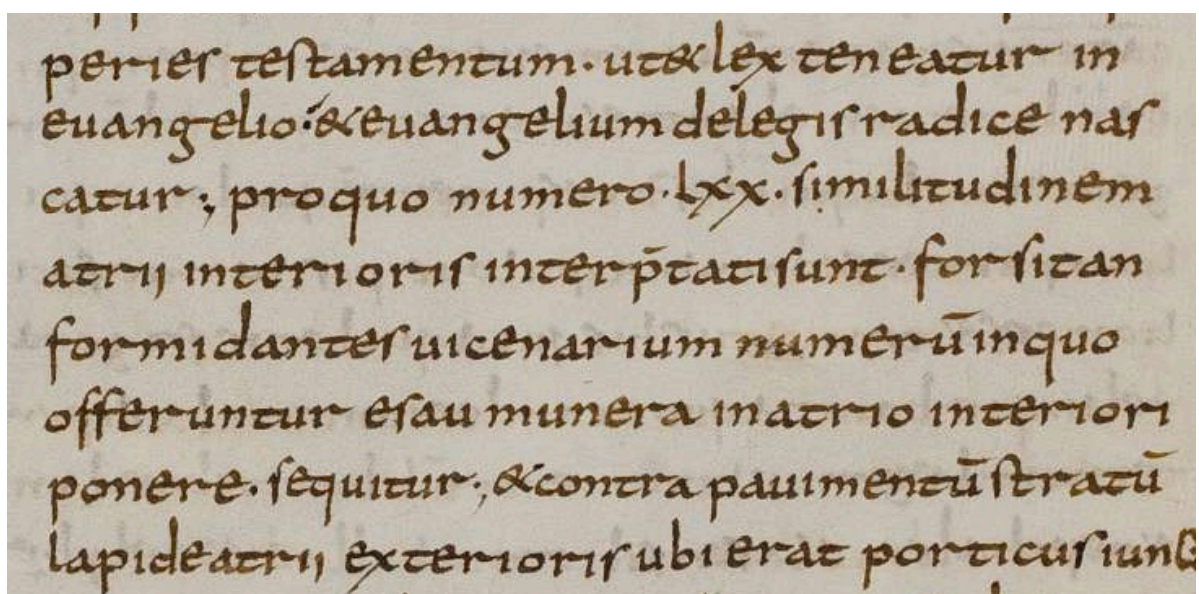 peries testamentum · ut & lex teneatur in
euangelio : & euangelium de legis radice nas
catur ; pro quo numero · lxx · similitudinem
atrii interioris interp̄tati sunt · forsitan
formidantes uicenarium numerū in quo
offeruntur esau munera in atrio interiori
ponere · sequitur ; & contra pauimentū stratū
lapide atrii exterioris ubi erat porticus iunc